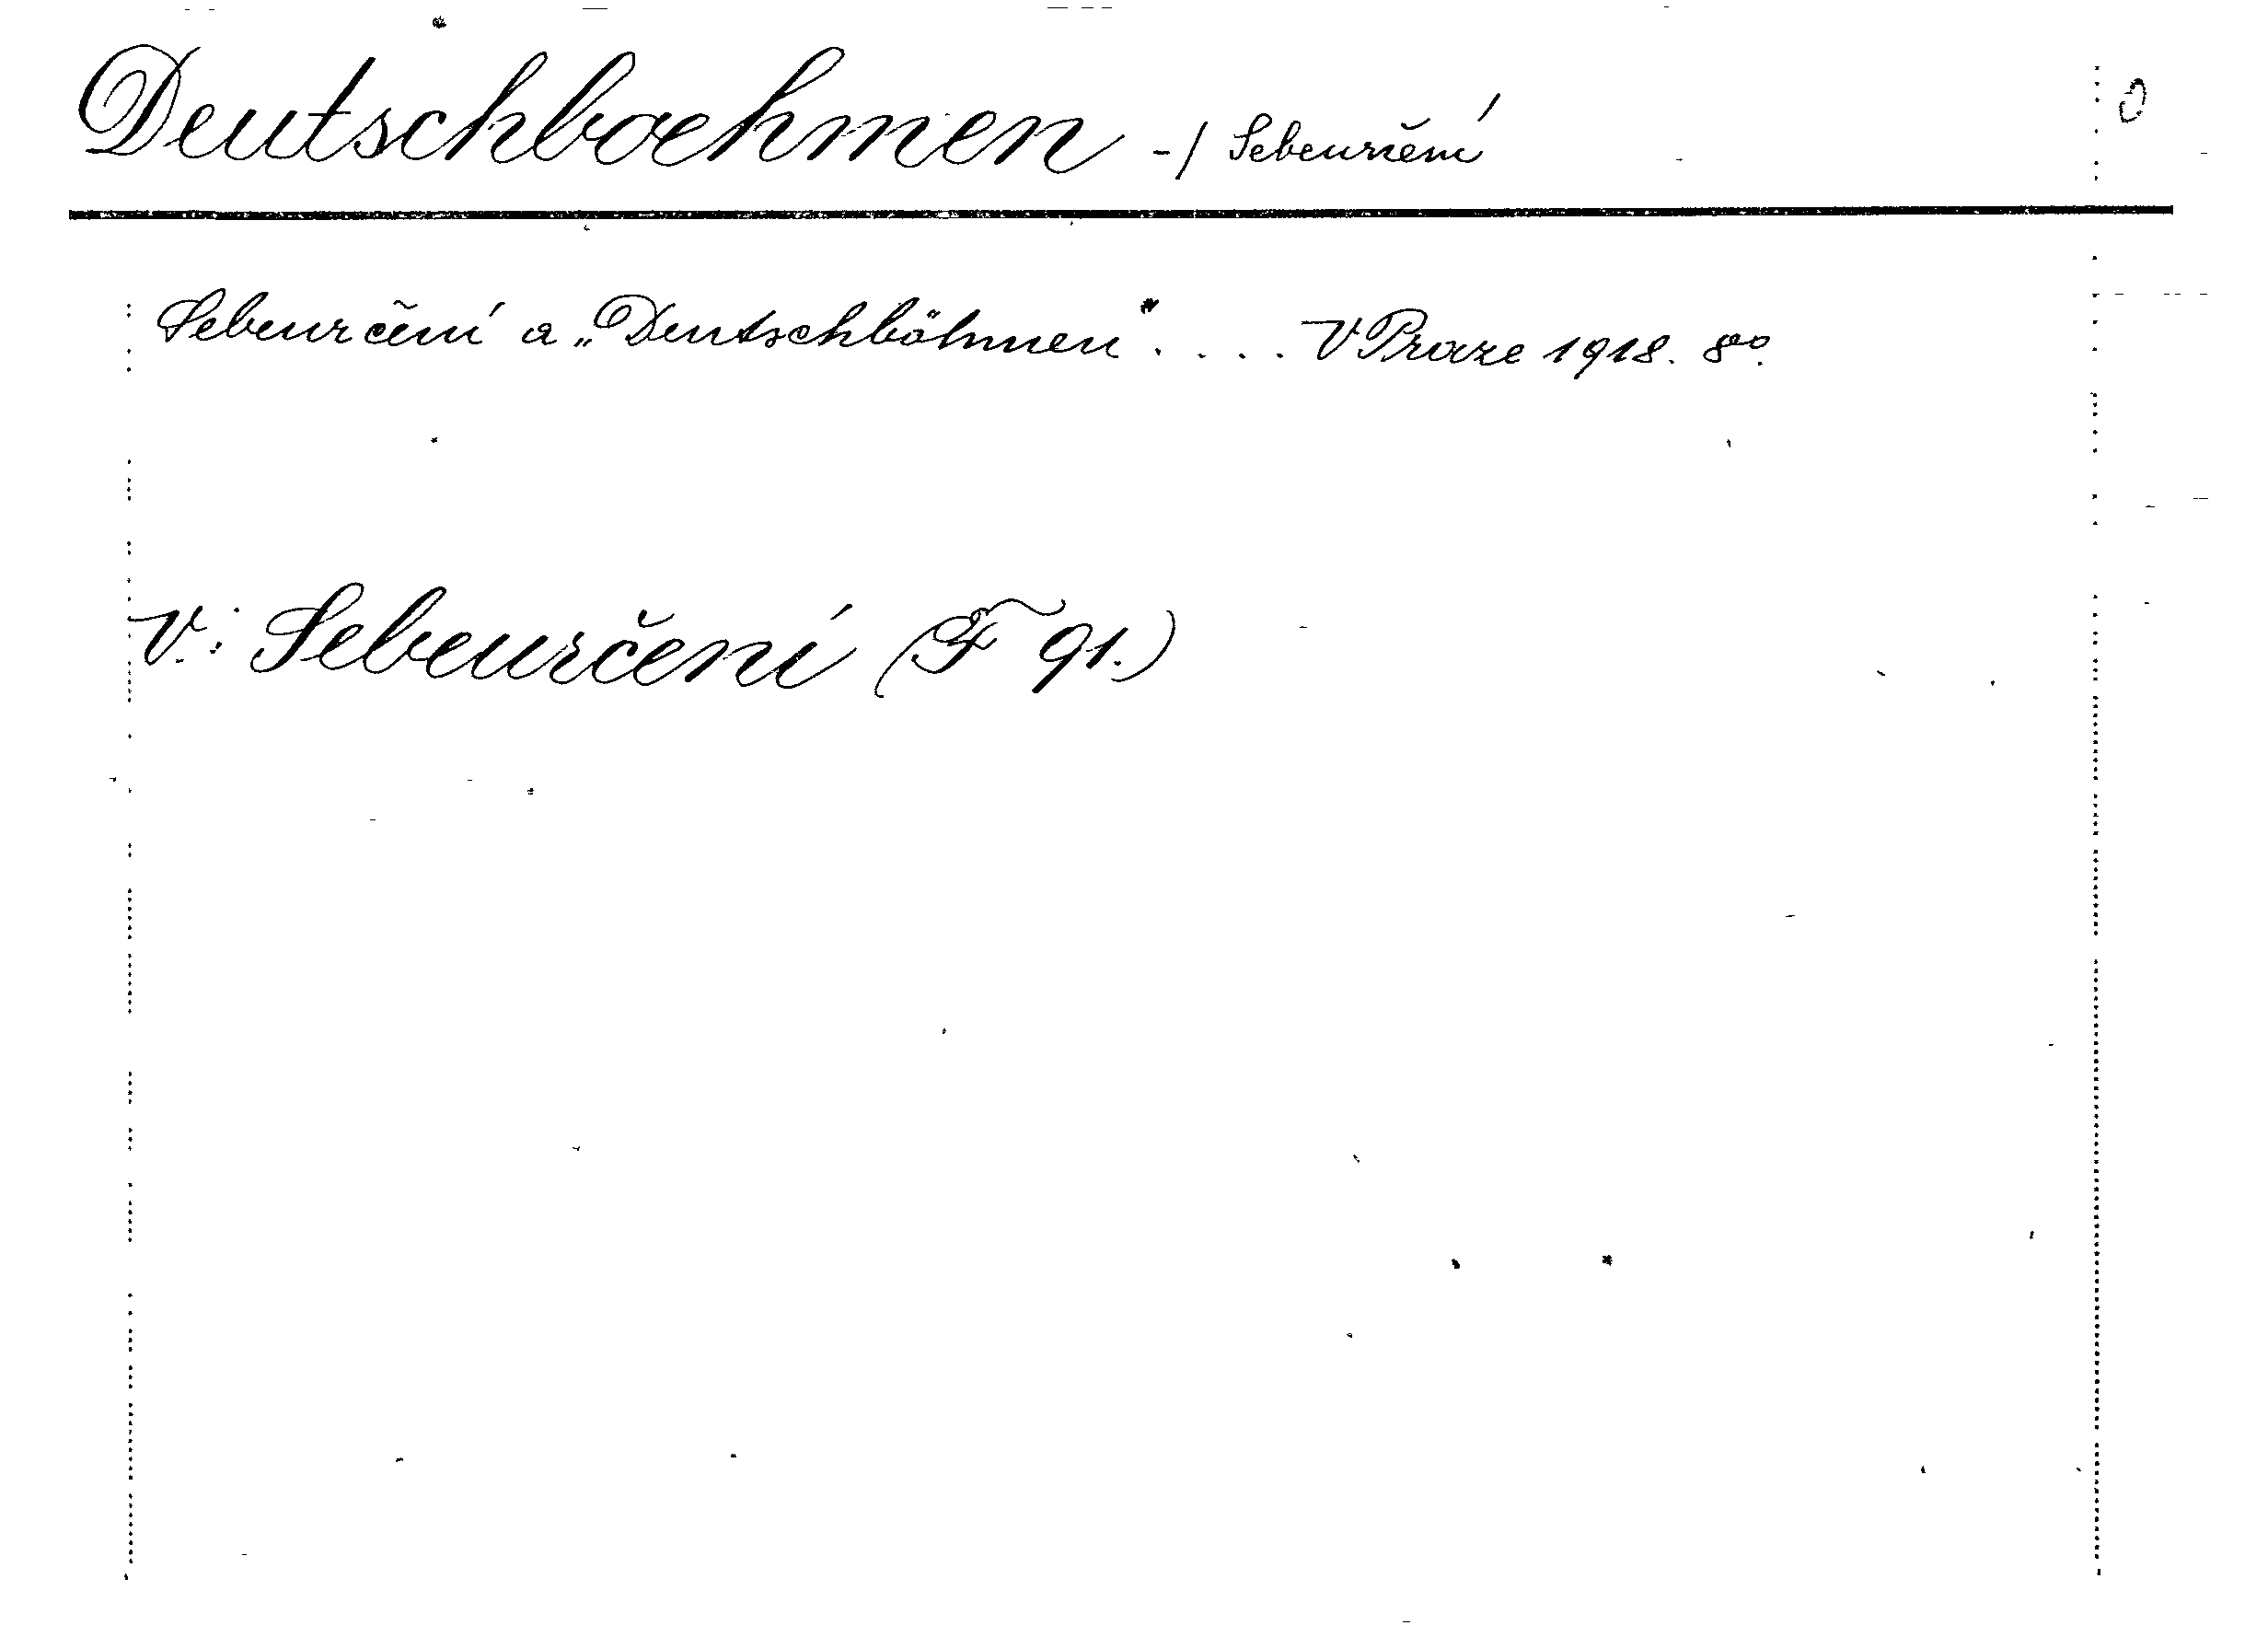 Deutschboehmen -/ Sebeurčení
Sebeurčení a „Deutschböhmen“. . . . V Praze 1918. 8º.
V: Sebeurčení (F 91.)